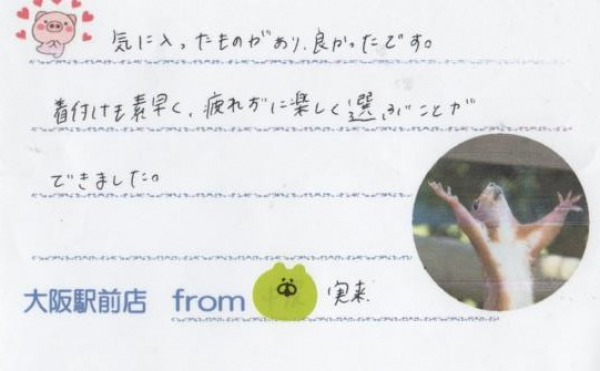 気に入ったものがあり、良かったです。
着付けも素早く、疲れずに楽しく選ぶことが
できました。
大阪駅前店 from 実来